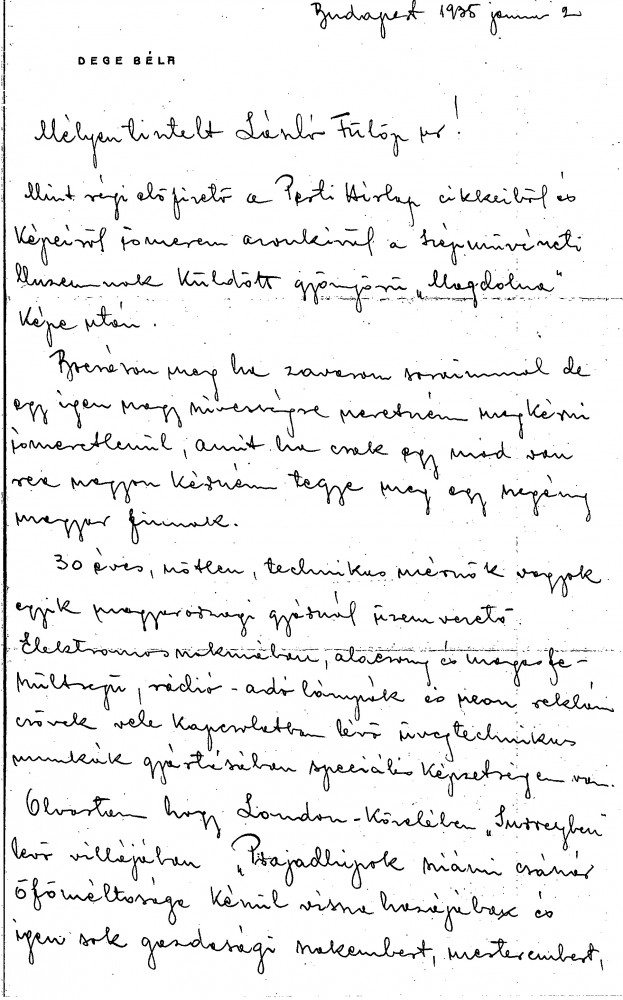 Budapest 1935 januar 2
DEGE BÉLA
Mélyen tisztelt László Fülöp ur!
Mint régi előfizető a Pesti Hirlap cikkeiből és
képeiről ismerem azonkivül a Szépművészeti
Muzeumnak küldött gyönyörü „Magdolna"
képe után.
Bocsásson meg ha zavarom soraimmal de
egy igen nagy szivességre szeretném megkérni
ismeretlenül, amit ha csak egy mód van
rea nagyon kérném tegye meg egy szegény
magyar fiunak.
30 éves, nőtlen, technikus mérnök vagyok
egyik magyarországi gyárnál üzemvezető.
Elektromos szakmában, alacsony és magasfe-
szültségü, rádió-adó lámpák és neon reklám
csövek vele kapcsolatban lévő üvegtechnikus
munkák gyártásában speciális képzetségem van.
Olvastam hogy London-közelében „Surreyben"
levő villájában „Prajadhipok sziámi császár
őfőméltósága készül vissza hazájába és
igen sok gazdasági szakembert, mesterembert,